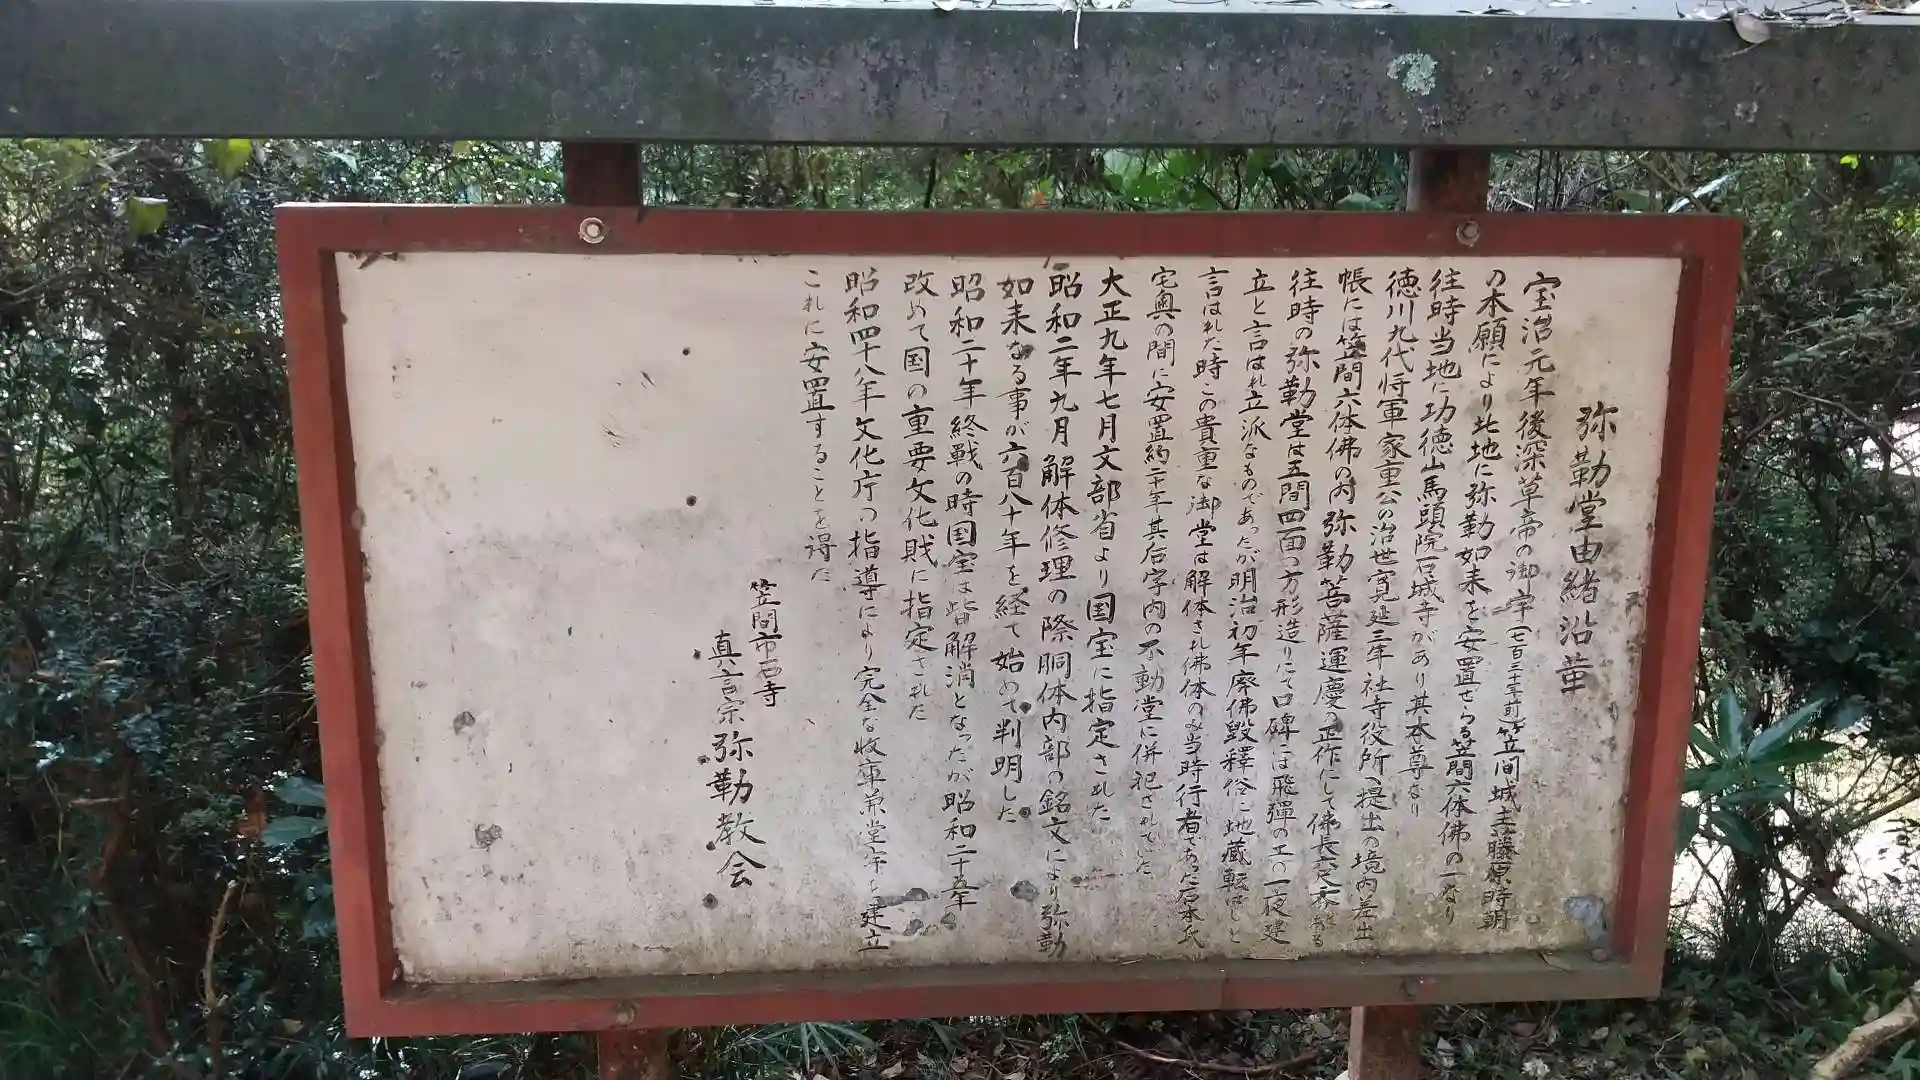 弥勒堂由緒沿革
宝治元年後深草帝の御宇(七百三十年前)笠间城主藤原時朝
の本願により此地に弥勒如来を安置せらる笠間六体佛の一なり
往時当地に功徳山馬頭院石城寺があり其本尊なり
徳川九代将軍家重公の治世寛延三年社寺役所へ提出の境内差出
帳には笠間六体佛の内弥勒菩薩運慶の正作にして佛長六尺とある
往時の弥勒堂は五間四面の方形造りにて口碑には飛彈の工の一夜建
立と言はれ立派なものであったが明治初年廃佛毀釋俗に地蔵転ばしと
言はれた時この貴重な御堂は解体され佛体のみ当時行者であった石本氏
宅奥の間に安置約二十年其后字内の不動堂に併祀されていた
大正九年七月文部省より国宝に指定された
昭和二年九月解体修理の際胴体内部の銘文により弥勒
如来なる事が六百八十年を経て始めて判明した
昭和二十年終戦の時国宝は皆解消となったが昭和二十五年
改めて国の重要文化財に指定された
昭和四十八年文化庁の指導により完全な收庫兼堂宇を建立
これに安置することを得た
笠間市石寺
真言宗弥勒教会